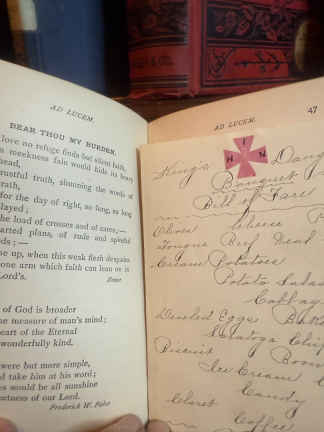 AD LUCEM.
BEAR THOU MY BURDEN.
love no refuge finds but silent faith,
meekness fain would hide its heavy
head,
trustful truth, shunning the words of
wrath,
for the day of right, so long, so long
layed;
he load of crosses and of cares,—
arted plans, of rude and spiteful
ds;—
e up, when this weak flesh despairs
one arm which faith can lean on is
Lord's.
of God is broader
e measure of man's mind;
heart of the Eternal
wonderfully kind.
were but more simple,
d take him at his word;
es would be all sunshine
eetness of our Lord.
Frederick W. Faber
AD LUCEM.
47
I H N
King's Daug
Banquet
Bill of Fare
Olives Cheese P
Tongue Beef Dead
Cream Potatoes
Potato Salad
Cabbag
Deviled Eggs Bak
Saratoga Chip
Biscuit
Ice Cream C
Candy
Claret
Coffee